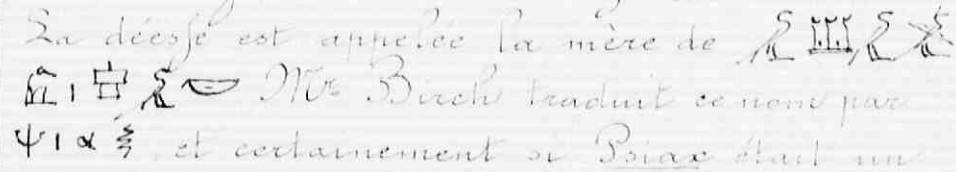 La déesse est appelée la mère de
Mr Birch traduit ce nom par
ΨΙΑΞ et certainement si Psiax était un